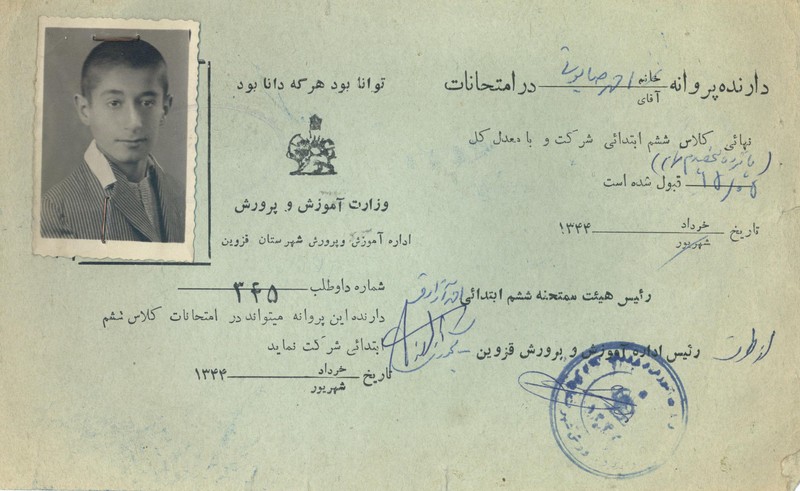 توانا بود هر که دانا بود
وزارت آموزش و پرورش
اداره آموزش و پرورش شهرستان قزوین
شماره داوطلب ۳۴۵
دارنده این پروانه میتواند در امتحانات کلاس ششم
ابتدائی شرکت نماید
تاریخ خرداد شهریور ۱۳۴۴
دارنده پروانه خانم آقای در امتحانات
نهائی کلاس ششم ابتدائی شرکت و با معدل کل
قبول شده است
تاریخ خرداد شهریور ۱۳۴۴
رئیس هیئت ممتحنه ششم ابتدائی
رئیس اداره آموزش و پرورش قزوین